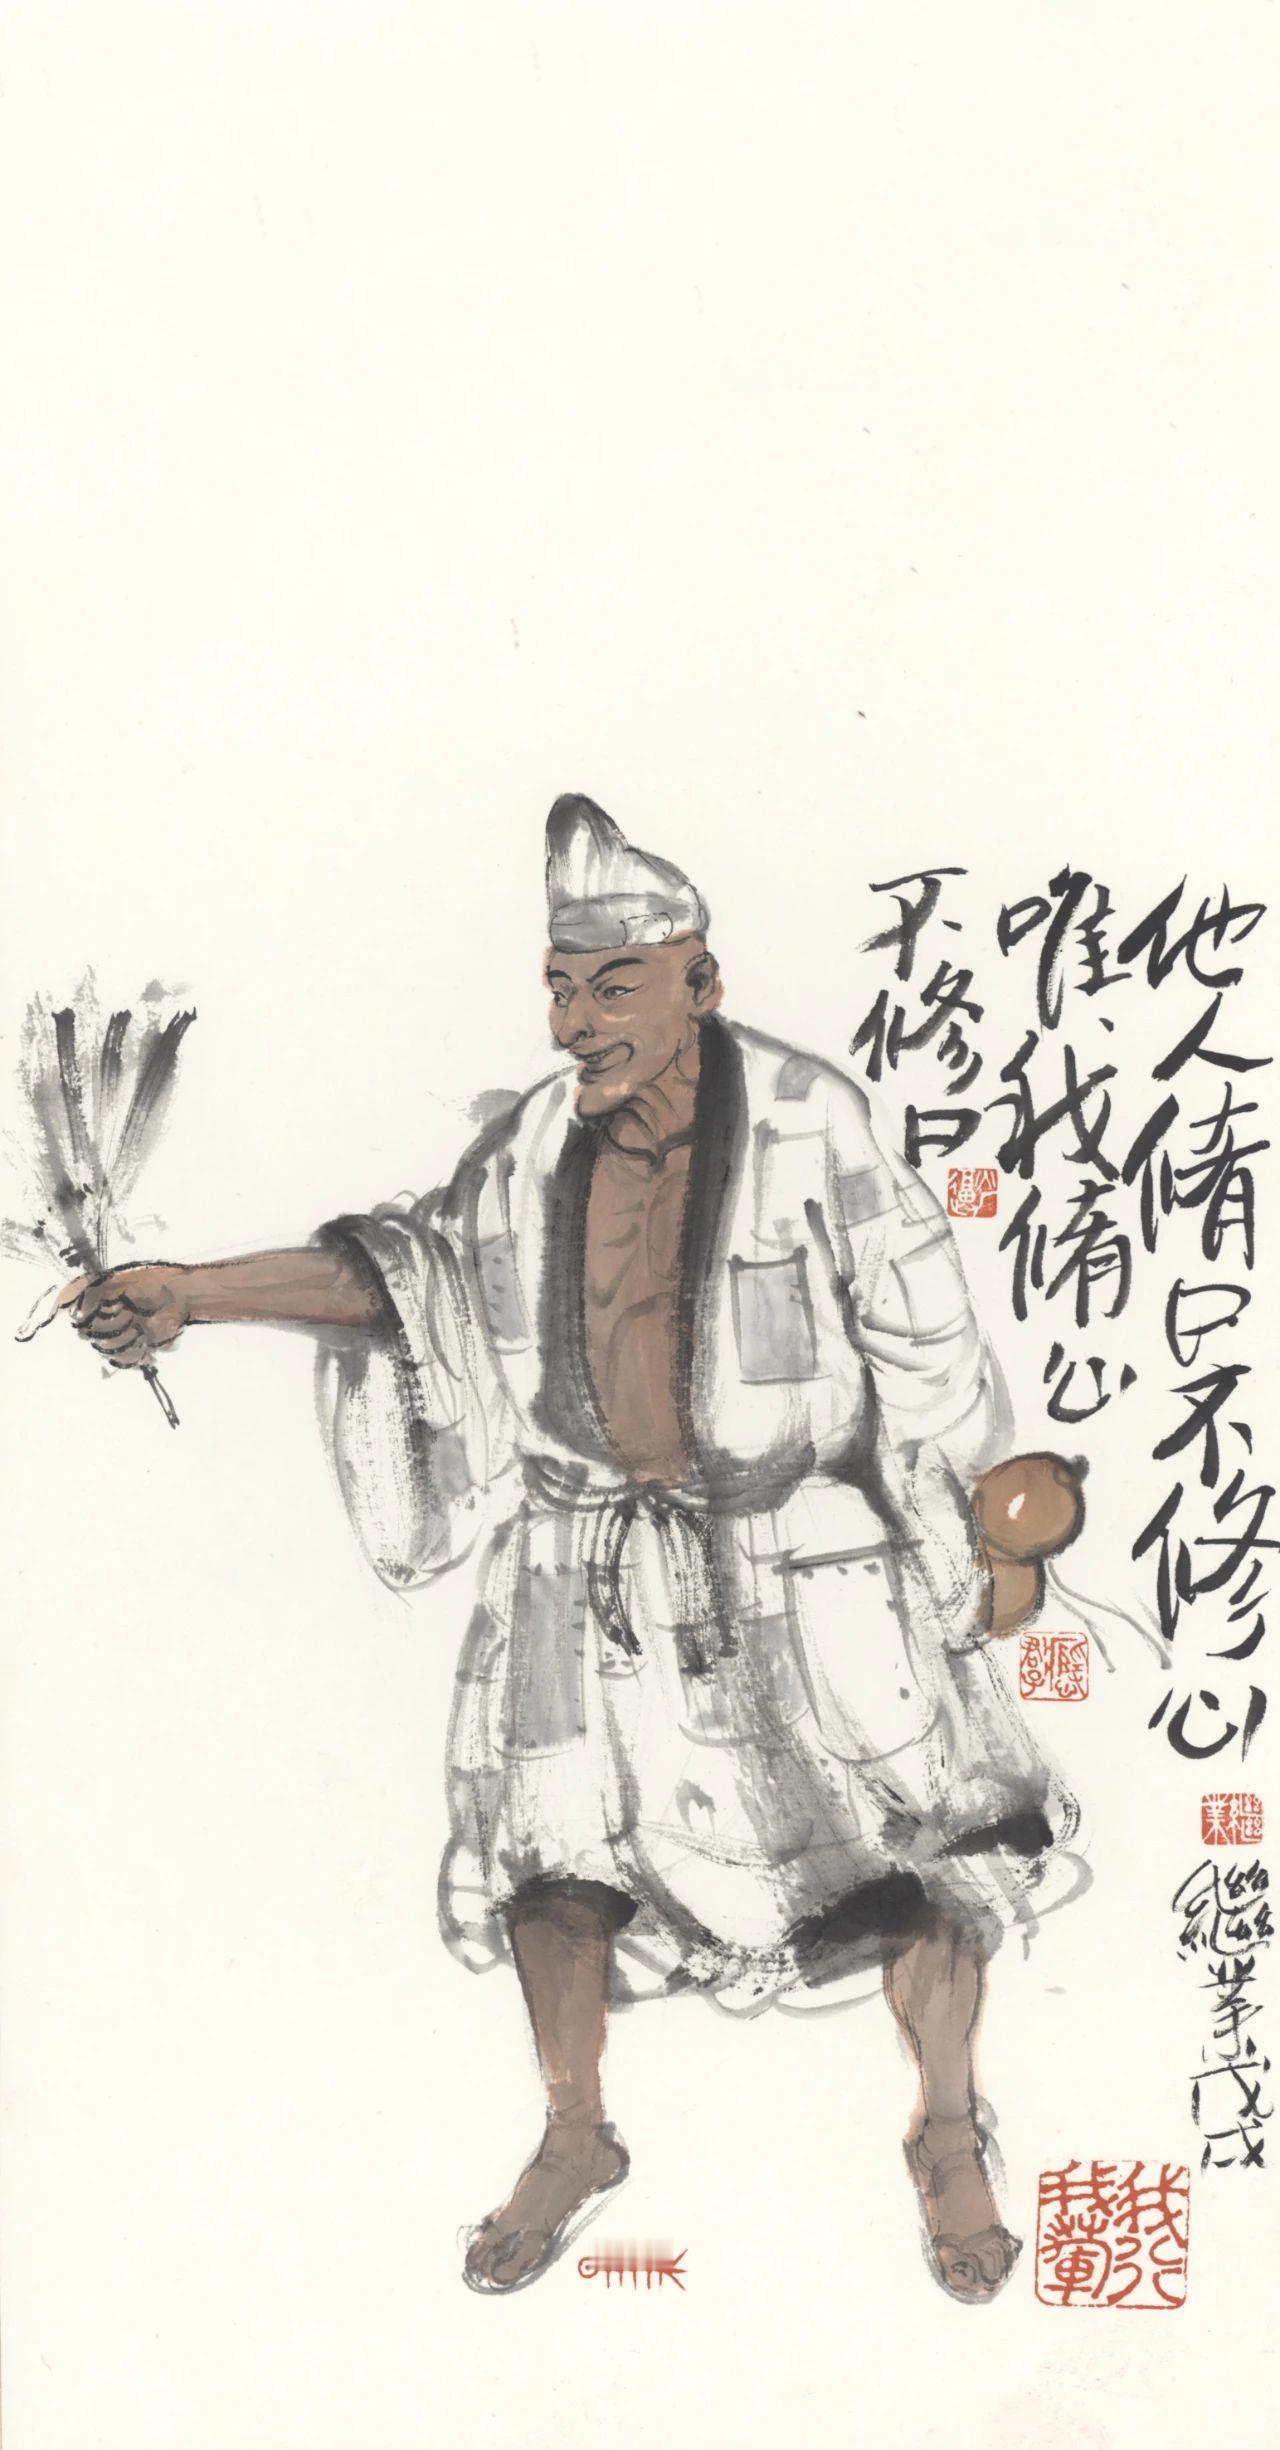 他人脩口不修心
唯我脩心
不修口
繼業戊戌
繼業